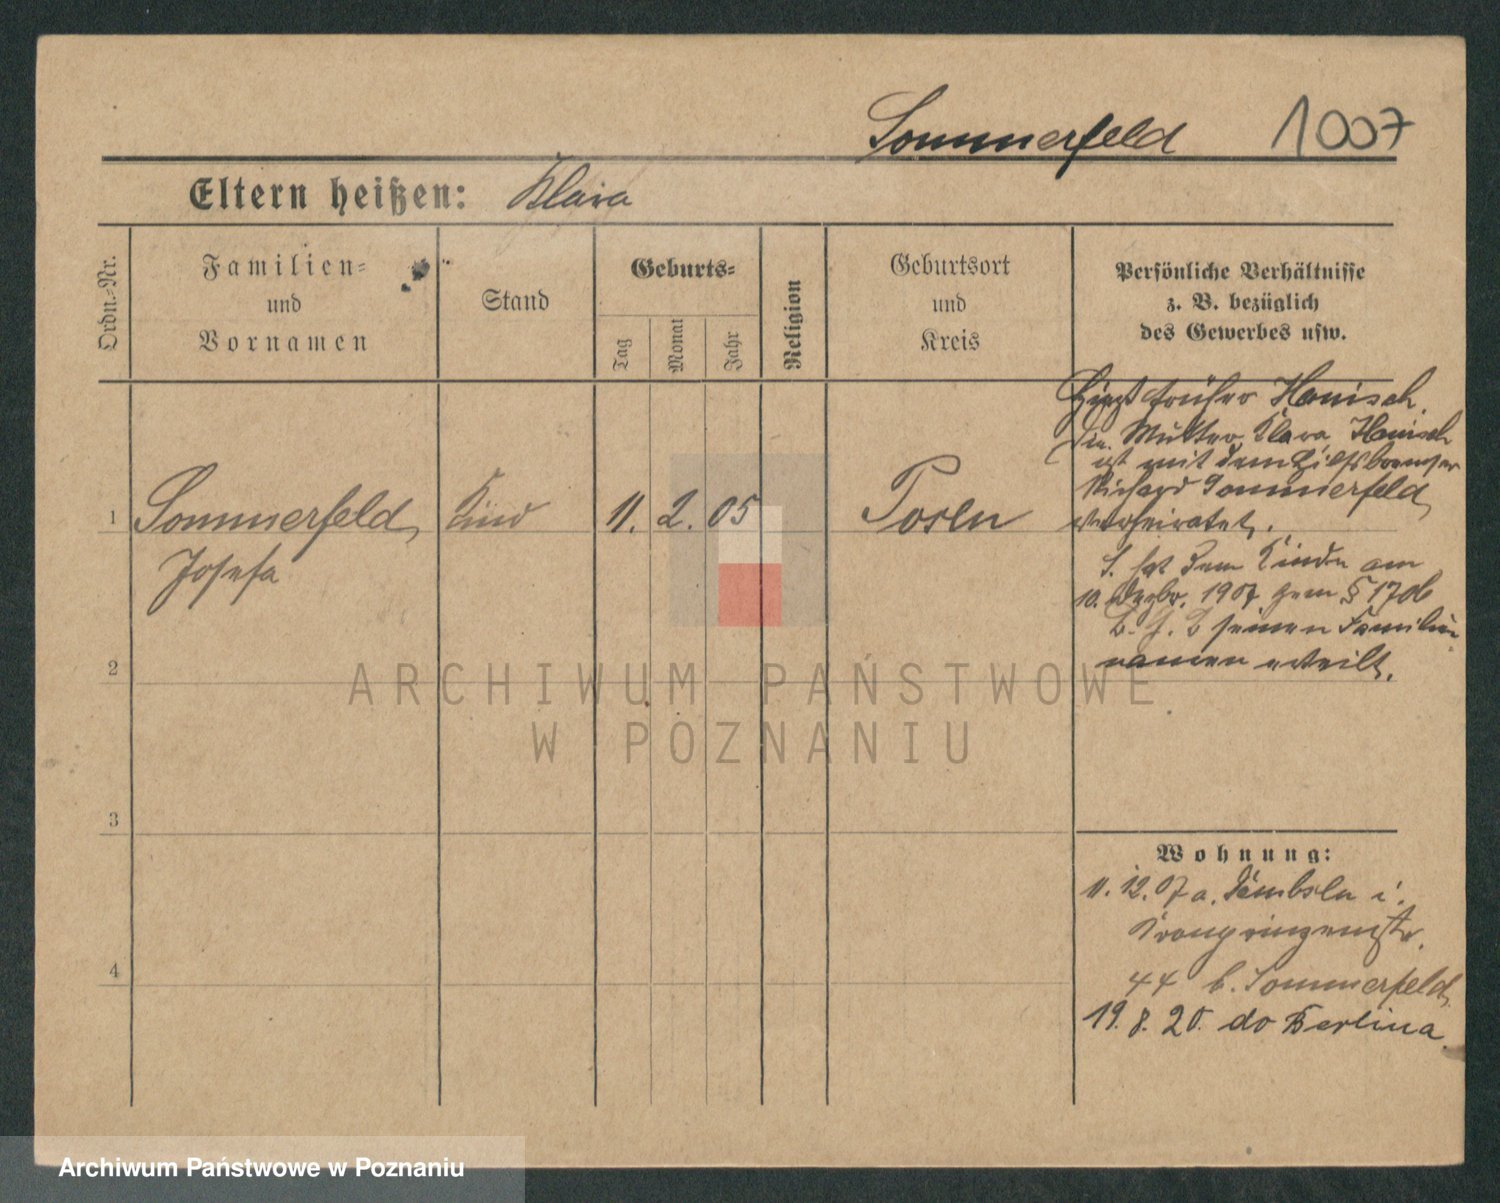 Sommerfeld 1007
Eltern heißen: Klara
Ordn.-Nr.
Familien-
und
Vornamen
Stand
Geburts-
Tag
Monat
Jahr
Religion
Geburtsort
und
Kreis
Persönliche Verhältnisse
z. B. bezüglich
des Gewerbes usw.
1
Sommerfeld,
Josefa
Kind
11. 2. 05
Posen
früher Hanisch.
Die Mutter Klara Hanisch
ist mit dem Hilfsbremser
Richard Sommerfeld,
verheiratet.
S. hat dem Kinde am
10. Dezbr. 1907 gem § 1706
B. G. B seinen Familien
namen erteilt.
2
3
4
Wohnung:
11. 12. 07 a. i.
Kronprinzenstr.
44 b. Sommerfeld,
19. 8. 20. do Berlina.
ARCHIWUM PAŃSTWOWE
W POZNANIU
Archiwum Państwowe w Poznaniu